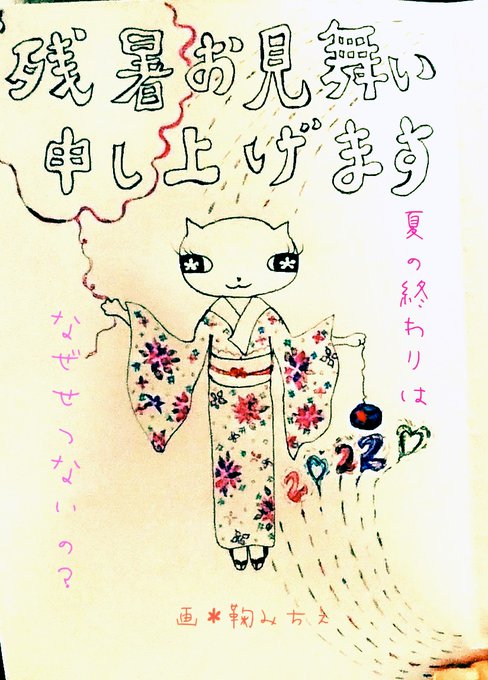 残暑お見舞い
申し上げます
夏の終わりは
なぜせつないの?
2♡22♡
画*鞠みちえ